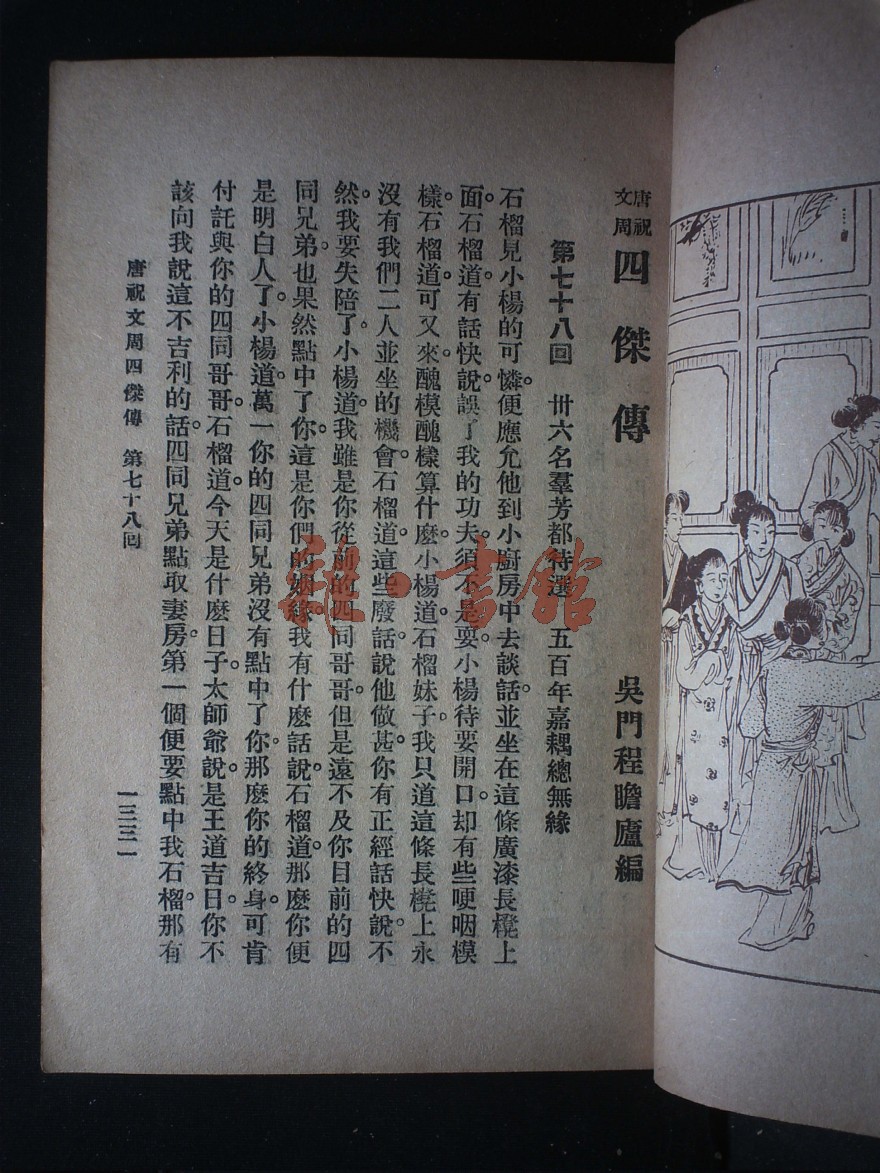 唐祝文周四傑傳
吳門程瞻廬編
第七十八回 卅六名羣芳都待選 五百年嘉耦總無緣
石榴見小楊的可憐。便應允他到小廚房中去談話。並坐在這條廣漆長櫈上
面。石榴道。有話快說。誤了我的功夫。須不是耍。小楊待要開口。却有些哽咽模
樣。石榴道。可又來。醜模醜樣算什麽。小楊道。石榴妹子。我只道這條長櫈上永
沒有我們二人並坐的機會。石榴道。這些廢話說他做甚。你有正經話快說。不
然。我要失陪了。小楊道。我雖是你從前的四同哥哥。但是遠不及你目前的四
同兄弟。也果然點中了你。這是你們的姻緣。我有什麽話說。石榴道。那麽你便
是明白人了。小楊道。萬一你的四同兄弟沒有點中了你。那麽你的終身。可肯
付託與你的四同哥哥。石榴道。今天是什麽日子。太師爺說。是王道吉日。你不
該向我說這不吉利的話。四同兄弟點取妻房。第一個便要點中我石榴。那有
唐祝文周四傑傳 第七十八回
一三三一
雅·書館